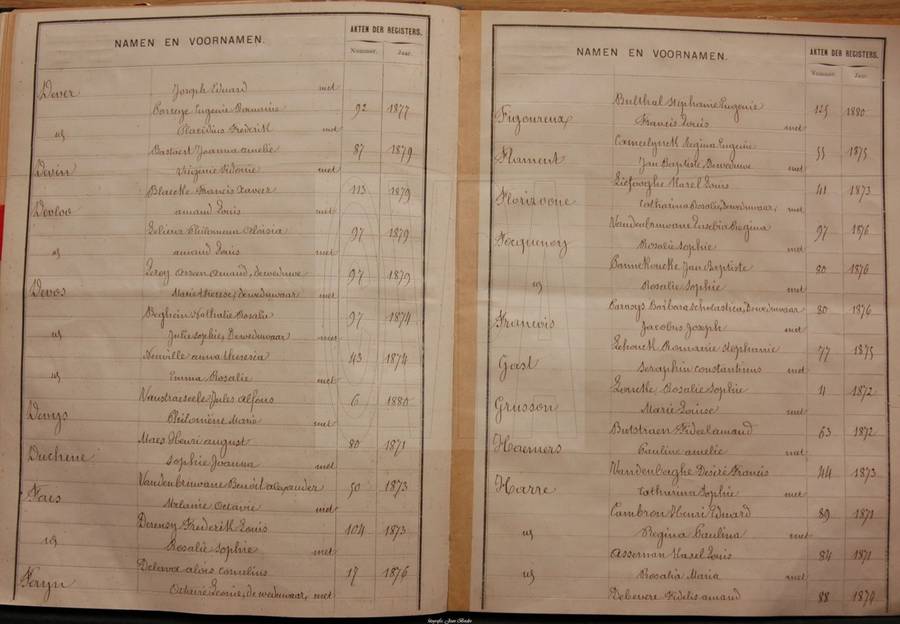 NAMEN EN VOORNAMEN.
AKTEN DER REGISTERS.
Nummer. Jaar.
Dever Joseph Eduard met
Eugenie Romanie 92 1877
id Placidius Frederik met
Bastaert Joanna amelie 87 1879
Devin Virginie Sidonie met
Blancke Francis Xaver 113 1879
Devloo amand Louis met
Philomena Aloisia 97 1879
id amand Louis met
Leroy amand, de weduwe 97 1879
Devos Marie therese, de weduwaar met
Beghein Nathalie Rosalie 97 1874
id Julie sophie, De weduwaar met
Neuville anna theresia 43 1874
id Emma Rosalie met
Vanstraeseele Jules Alfons 6 1880
Devys Philomène Marie met
Maes Henri august 80 1871
Duchene Sophie Joanna met
Vandenbruwane Benoit alexander 50 1873
Fais Melanie Octavie met
Frederik Louis 104 1873
id Rosalie Sophie met
Delava alois cornelius 17 1876
Feryn Leonie, de weduwaar, met
NAMEN EN VOORNAMEN.
AKTEN DER REGISTERS.
Nummer. Jaar.
Bulthal Stephanie Eugenie 125 1880
Figoureux Francis Louis met
Regina Eugenie 55 1875
Flament Jan Baptiste, De weduwe met
Liefooghe Karel Louis 41 1873
Florizoone Catharina Rosalie, De weduwaar, met
Vandenbruwane Eusebia Regina 97 1876
Focqueney Rosalie Sophie met
Bannekoucke Jan Baptiste 80 1876
id Rosalie Sophie met
Barbara Scholastica, De weduwaar 80 1876
Francois Jacobus Joseph met
Lehouck Romanie Stephanie 77 1875
Gest Seraphin Constantinus met
Rosalie Sophie 4 1872
Grusson Marie Louise met
Butstraen Fideel amand 63 1872
Hamers Pauline amelie met
Vandenbergh Desiré Francis 44 1873
Harre Catharina Sophie met
Cambron Henri Eduard 89 1871
id Regina Paulina met
Asseman Karel Louis 84 1871
id Rosalia Maria met
Debevere Fidelis amand 88 1874